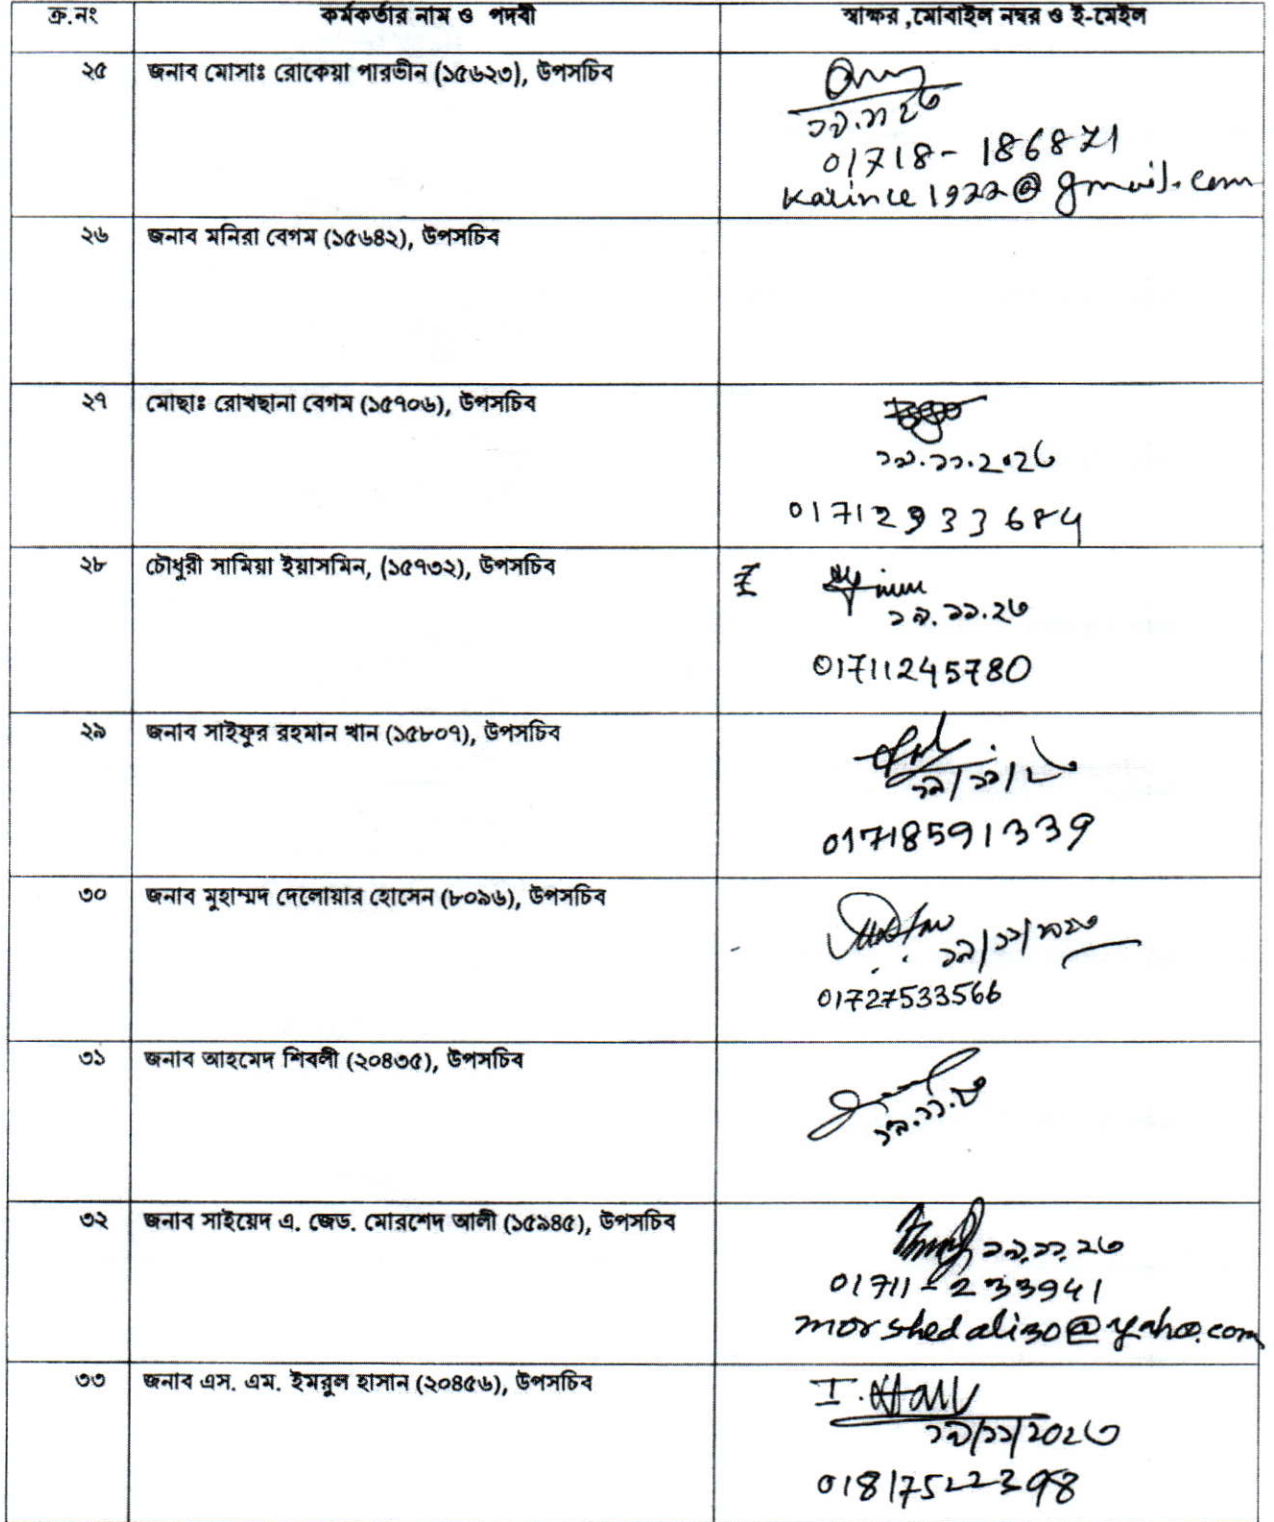 ক্র.নং কর্মকর্তার নাম ও পদবী স্বাক্ষর ,মোবাইল নম্বর ও ই-মেইল
২৫ জনাব মোসাঃ রোকেয়া পারভীন (১৫৬২৩), উপসচিব
01718-186871
@gmail.com
২৬ জনাব মনিরা বেগম (১৫৬৪২), উপসচিব
২৭ মোছাঃ রোখছানা বেগম (১৫৭০৬), উপসচিব
১৯.১১.২০২৩
01712933684
২৮ চৌধুরী সামিয়া ইয়াসমিন, (১৫৭৩২), উপসচিব
১৯.১১.২৩
01711245780
২৯ জনাব সাইফুর রহমান খান (১৫৮০৭), উপসচিব
১৯/১১/২৩
01718591339
৩০ জনাব মুহাম্মদ দেলোয়ার হোসেন (৮০৯৬), উপসচিব
১৯/১১/২০২৩
01727533566
৩১ জনাব আহমেদ শিবলী (২০৪৩৫), উপসচিব
১৯.১১.২৩
৩২ জনাব সাইয়েদ এ. জেড. মোরশেদ আলী (১৫৯৪৫), উপসচিব
১৯.১১.২৩
01711-233941
morshedali30@yahoo.com
৩৩ জনাব এস. এম. ইমরুল হাসান (২০৪৫৬), উপসচিব
১৯/১১/২০২৩